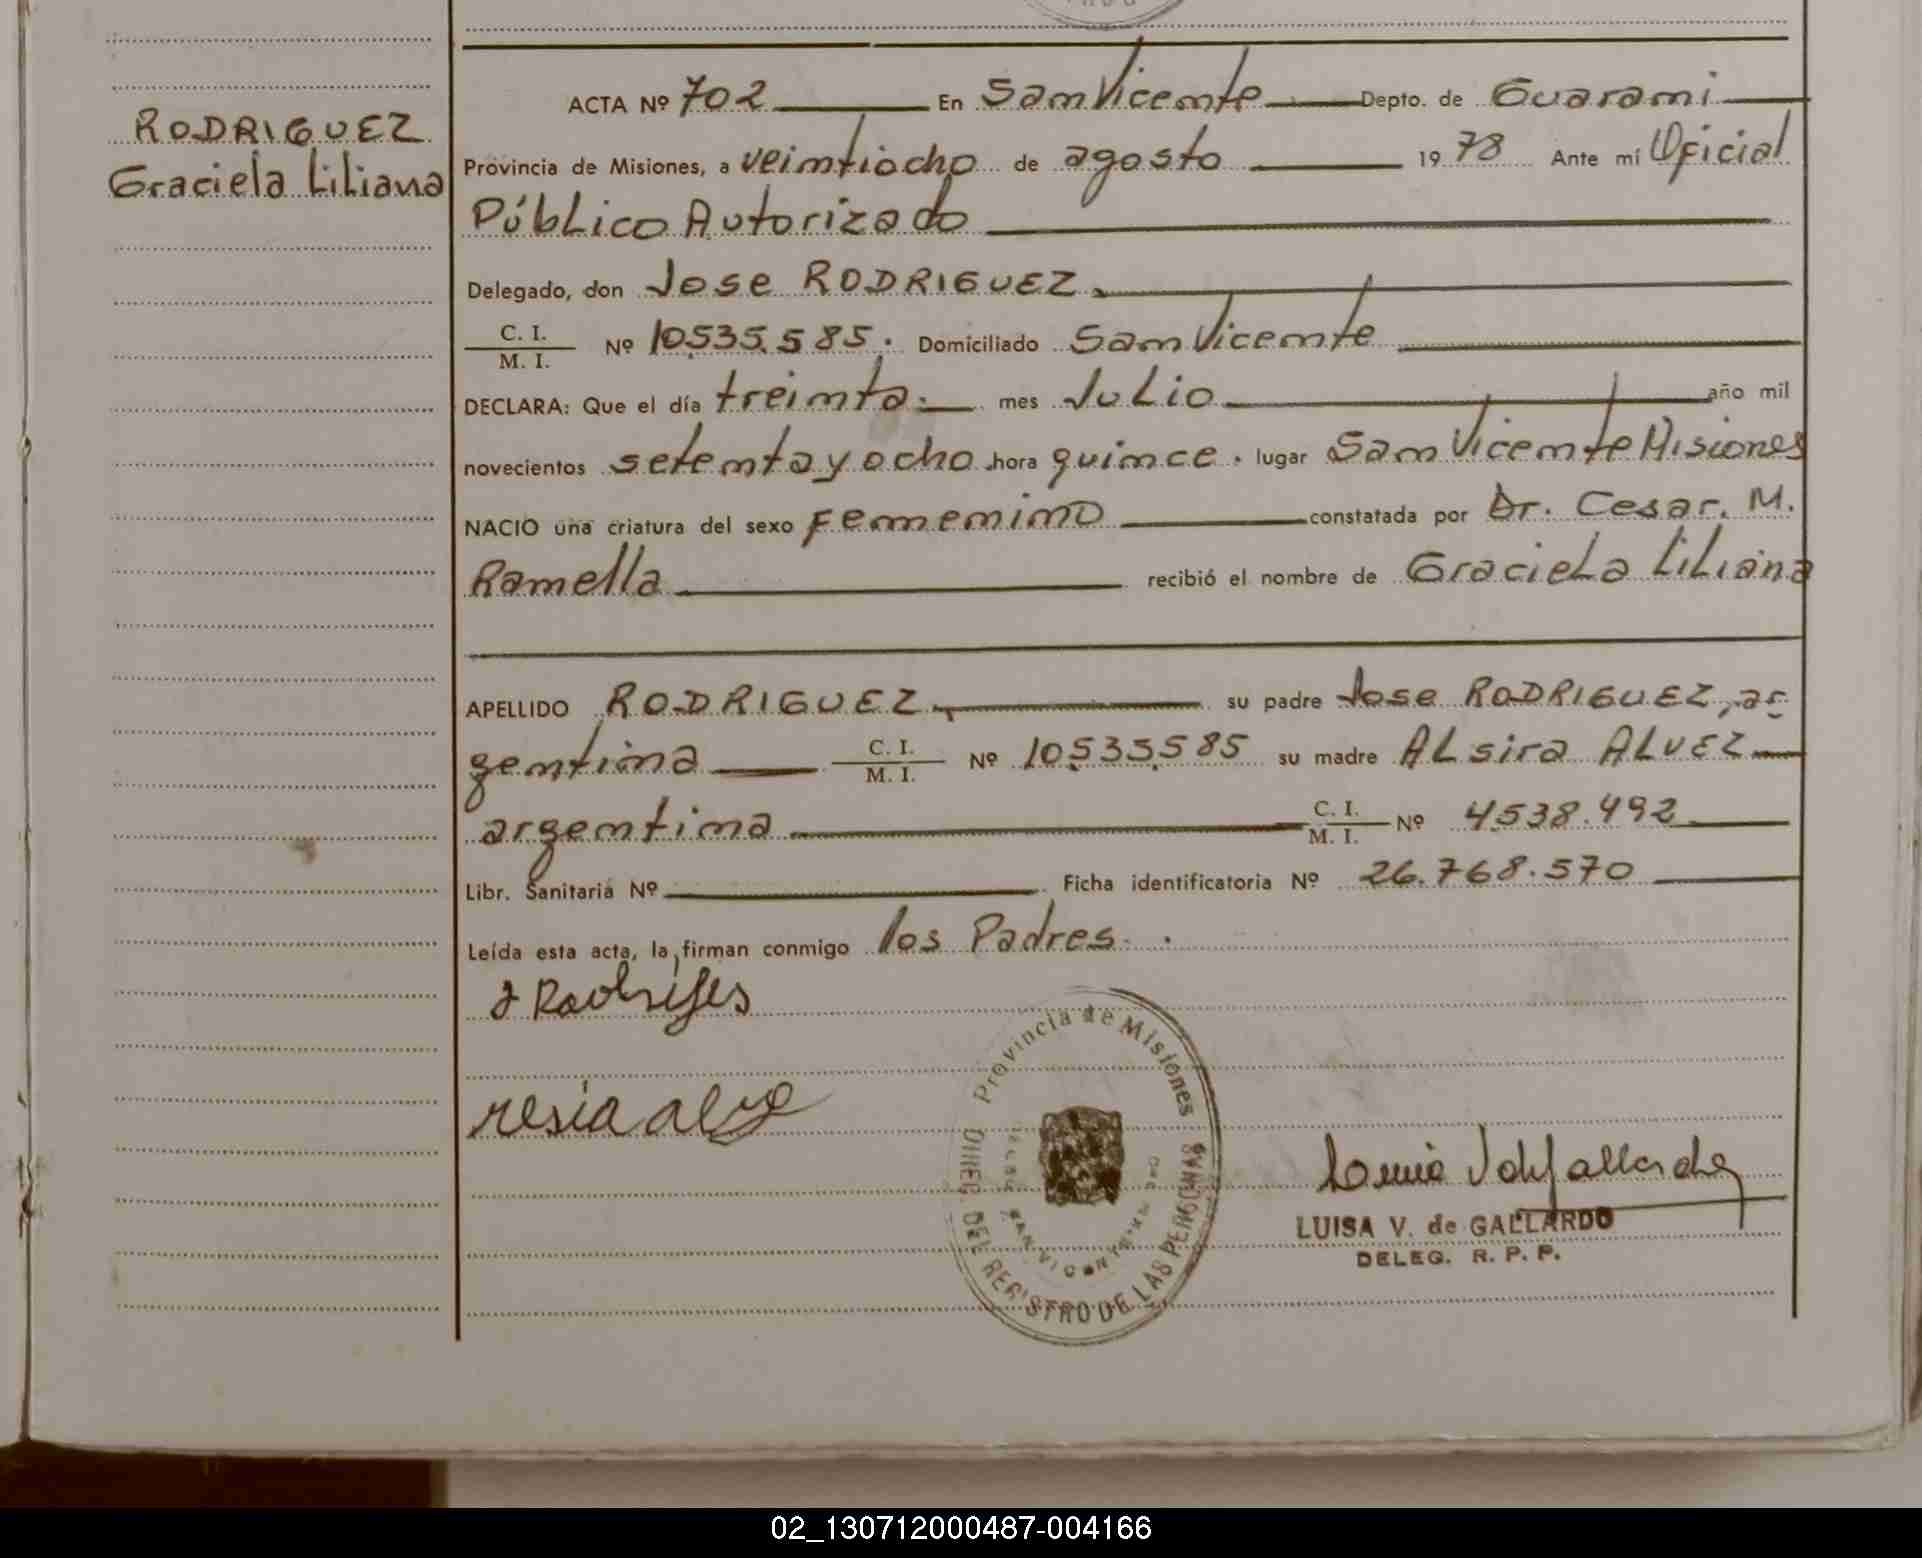 RODRIGUEZ
Graciela Liliana
ACTA Nº 702 En San Vicente Depto. de Guarani
Provincia de Misiones, a veintiocho de agosto 1978 Ante mí Oficial
Público Autorizado
Delegado, don Jose RODRIGUEZ.
C. I.
M. I.
Nº 10.535.585. Domiciliado San Vicente
DECLARA: Que el día treinta. mes Julio año mil
novecientos setenta y ocho hora quince. lugar San Vicente Misiones
NACIO una criatura del sexo Femenino constatada por Dr. Cesar. M.
Ramella recibió el nombre de Graciela Liliana
APELLIDO RODRIGUEZ, su padre Jose RODRIGUEZ, ar
gentina C. I. / M. I. Nº 10.535.585 su madre ALsira ALVEZ
argentina C. I. / M. I. Nº 4.538.492
Libr. Sanitaria Nº Ficha identificatoria Nº 26.768.570
Leída esta acta, la firman conmigo los Padres.
Provincia de Misiones
DIREC. DEL REGISTRO DE LAS PERSONAS
SAN VICENTE
LUISA V. de GALLARDO
DELEG. R. P. P.
02_130712000487-004166